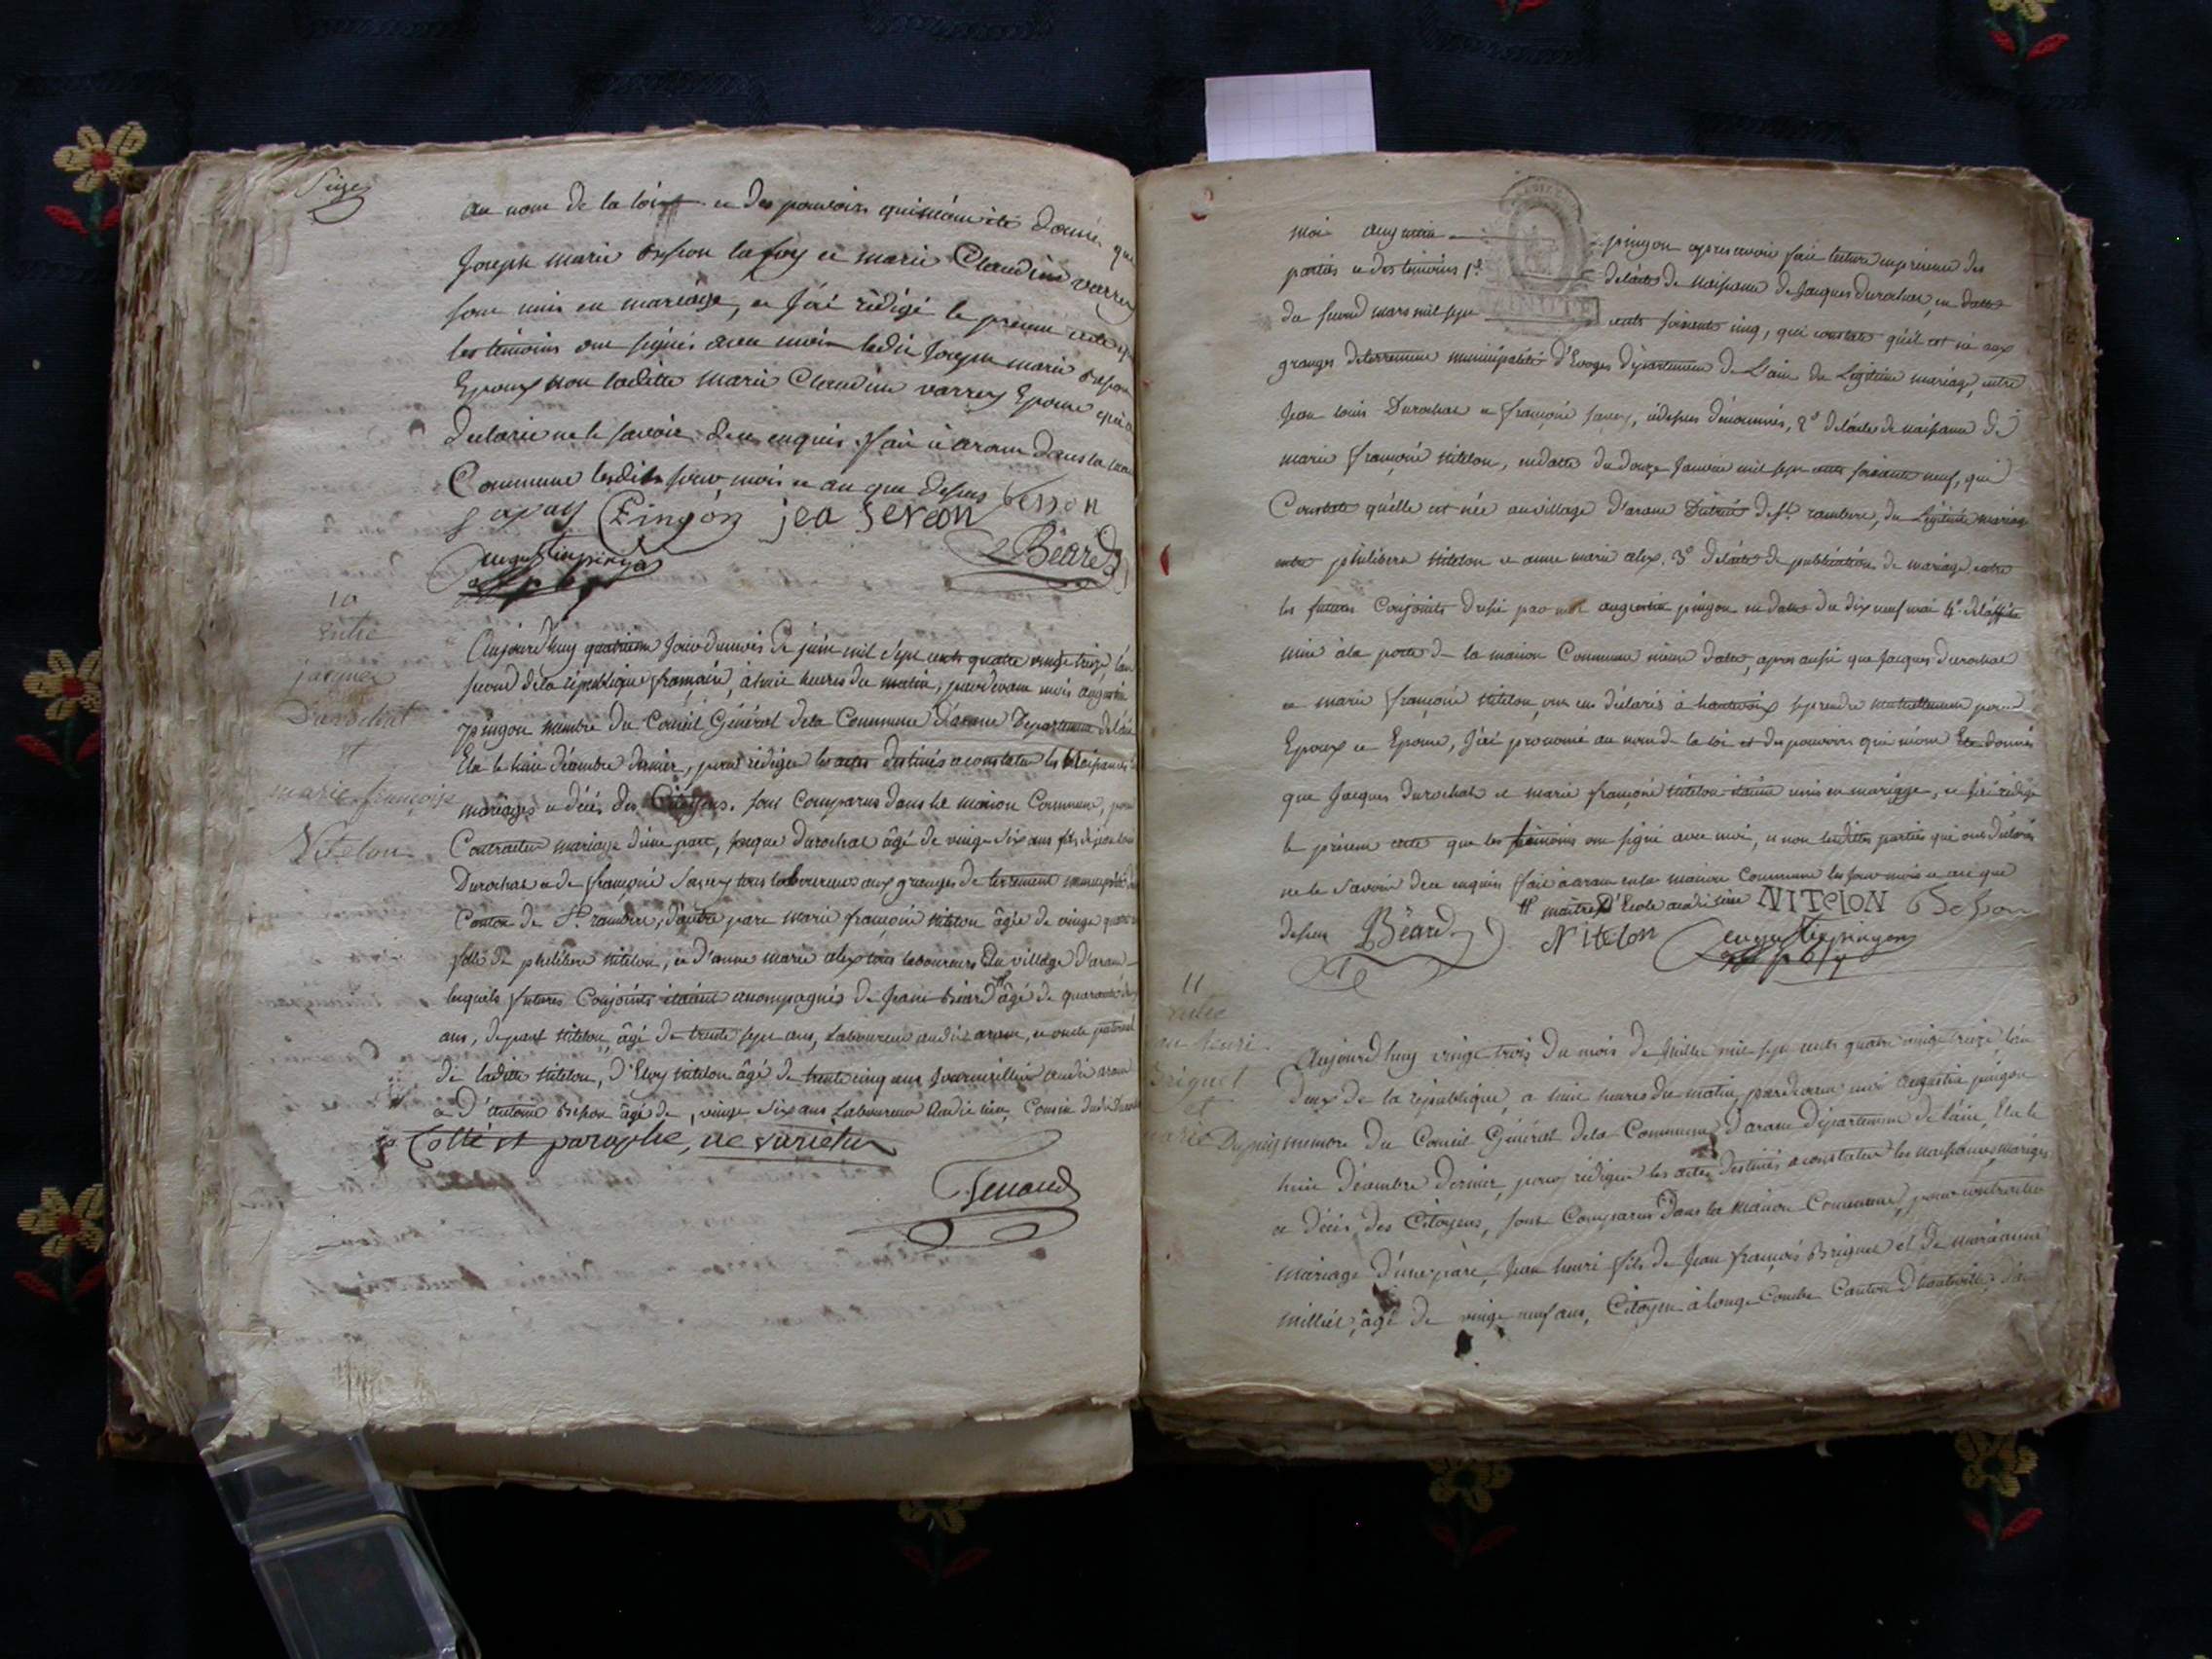 Seize
au nom de la loi et des pouvoirs qui m'ont été donnés que
Joseph marie Besson lafoy et marie Claudine varrey
sont unis en mariage, et j'ai rédigé le présent acte que
les témoins ont signés avec moi ledit Joseph marie Besson
Epoux non laditte marie Claudine varrey Epouse qui a
declaré ne le savoir de ce enquis. fait à aranc dans la maison
Commune lesdits jour, mois et an que dessus
Pingon jea Sereon Besson
augustin pingon Béard
10
entre
jacques
Durochat
et
marie françoise
Nitelon
Aujourd'huy quatrieme jour du mois de juin mil sept cents quatre vingt treize, l'an
second de la république française, à huit heures du matin, pardevant moi augustin
pingon membre du Conseil Général de la Commune d'aranc Département de l'ain
Elu le huit décembre dernier, pour rédiger les actes destinés a constater les Naissances
mariages et décés des Citoyens. sont Comparus dans la maison Commune, pour
Contracter mariage d'une part, jacque durochat âgé de vingt six ans fils de jean louis
Durochat et de françoise savey tous laboureurs aux granges de terrement municipalité
Canton de St. rambert, d'autre part marie françoise nitelon âgée de vingt quatre
fille de philibert nitelon, et d'anne marie alex tous laboureurs du village d'aranc
lesquels futures Conjoints étaient accompagnés de Béard âgé de quarante
ans, de nitelon, âgé de trente sept ans, Laboureur audit aranc, et oncle paternel
de laditte nitelon, d'Eloy nitelon âgé de trente cinq ans journaillier audit aranc
et d'antoine Besson âgé de, vingt six ans Laboureur audit lieu, Cousin dudit Durochat
Cotté et paraphé, ne varietur
moi augustin pingon après avoir fait lecture en présence des
parties et des témoins 1.° de l'acte de naissance de Jacques durochat, en datte
du second mars mil sept cents soixante cinq, qui constate qu'il est né aux
granges de terrement municipalité d'Evoges département de L'ain du Légitime mariage, entre
Jean louis Durochat et françoise savey, cidessus dénommés, 2° de l'acte de naissance de
marie françoise nitelon, en datte du douze Janvier mil sept cents soixante neuf, qui
Constate qu'elle est née au village d'aranc District de St. rambert, du Légitime mariage
entre philibert nitelon et anne marie alex. 3° de l'acte de publication de mariage entre
les futures Conjoints dressé par moi augustin pingon en datte du dix neuf mai 4° de l'affiche
mise à la porte de la maison Commune même datte, après aussi que Jacques durochat
et marie françoise nitelon, ont eu déclarés à hautevoix se prendre mutuellement pour
Epoux et Epouse, J'ai prononcé au nom de la loi et des pouvoirs qui m'ont été donnés
que Jacques durochat et marie françoise nitelon étaient unis en mariage, et j'ai rédigé
le présent acte que les témoins ont signé avec moi, et non lesdittes parties qui ont déclarés
ne le savoir de ce enquis fait à aranc en la maison Commune les jour mois et an que
maître d'Ecole audit lieu NITELON Besson
dessus Béard Nitelon augustin pingon
11
entre
jean henri
Briquet
et
marie Dupuis
Aujourd'huy vingt trois du mois de Juillet mil sept cents quatre vingt treize l'an
deux de la république, a huit heures du matin, pardevant moi augustin pingon
membre du Conseil Général de la Commune d'aranc département de l'ain, Elu le
huit décembre dernier, pour rédiger les actes destinés a constater les naissances, mariages
et décés des Citoyens, sont Comparus dans la maison Commune, pour contracter
mariage d'une part, Jean henri fils de Jean françois Briquet et de marianne
millict, âgé de vingt neuf ans, Citoyen à longe Combe Canton d'hauteville,